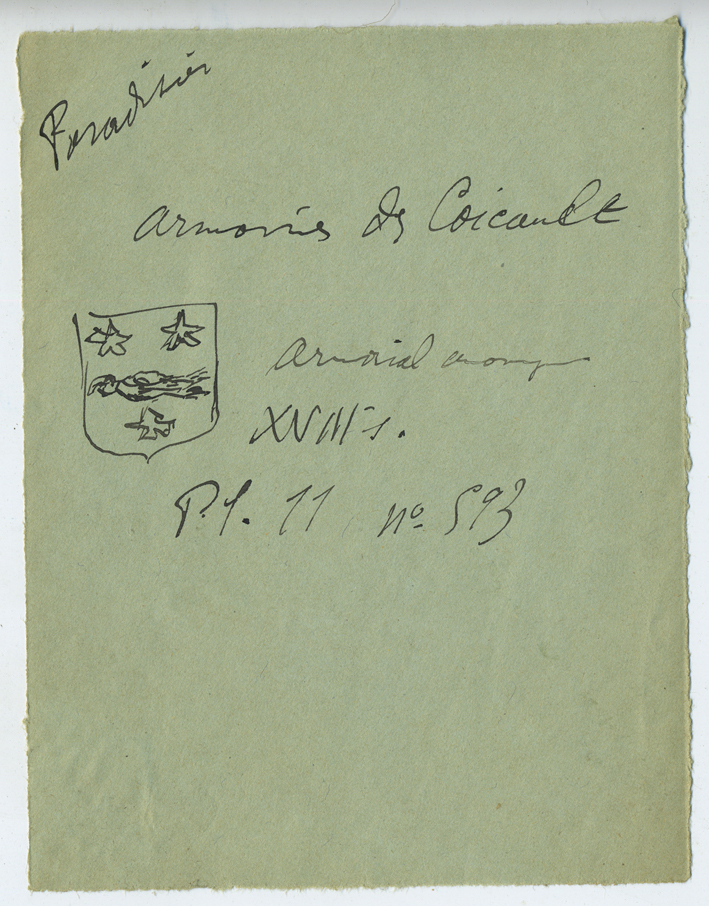 Paradisier
Armoiries de Coicault
Armorial anonyme
XVIIIe s.
Pl. 11 no 593